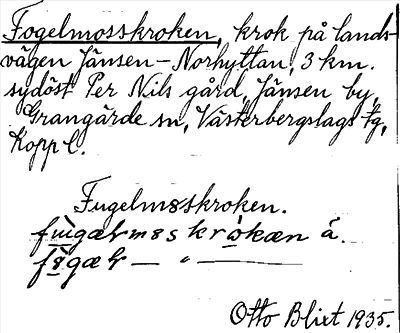 Fogelmosskroken, krok på lands-
vägen Jänsen – Norhyttan, 3 km.
sydöst Per Nils gård, Jänsen by,
Grangärde sn, Västerbergslags tg,
Kopp l.
Fugelmosskroken.
fùgæƚmɞs kròkæn á.
fɞgæƚ — " —
Otto Blixt 1935.